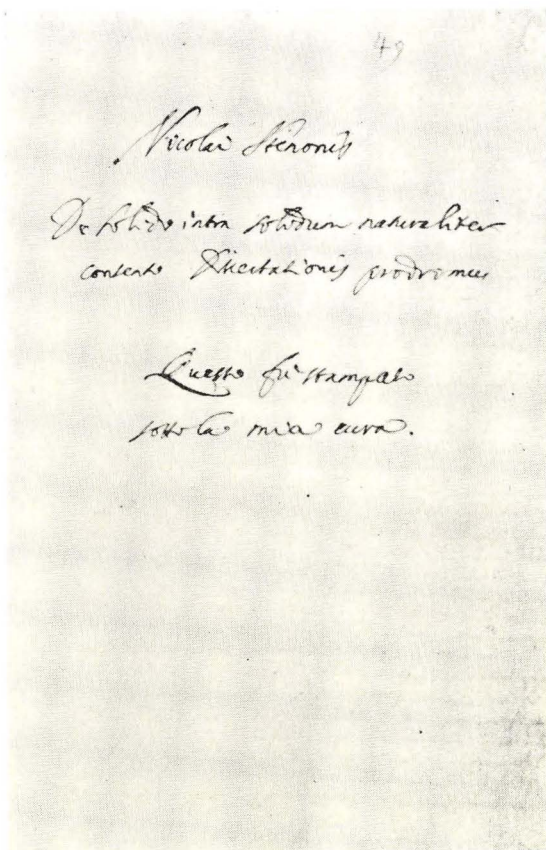 49
Nicolai Stenonis
De solido intra solidum naturaliter
contento Dissertationis prodromus
Questo fù stampato
sotto la mia cura.